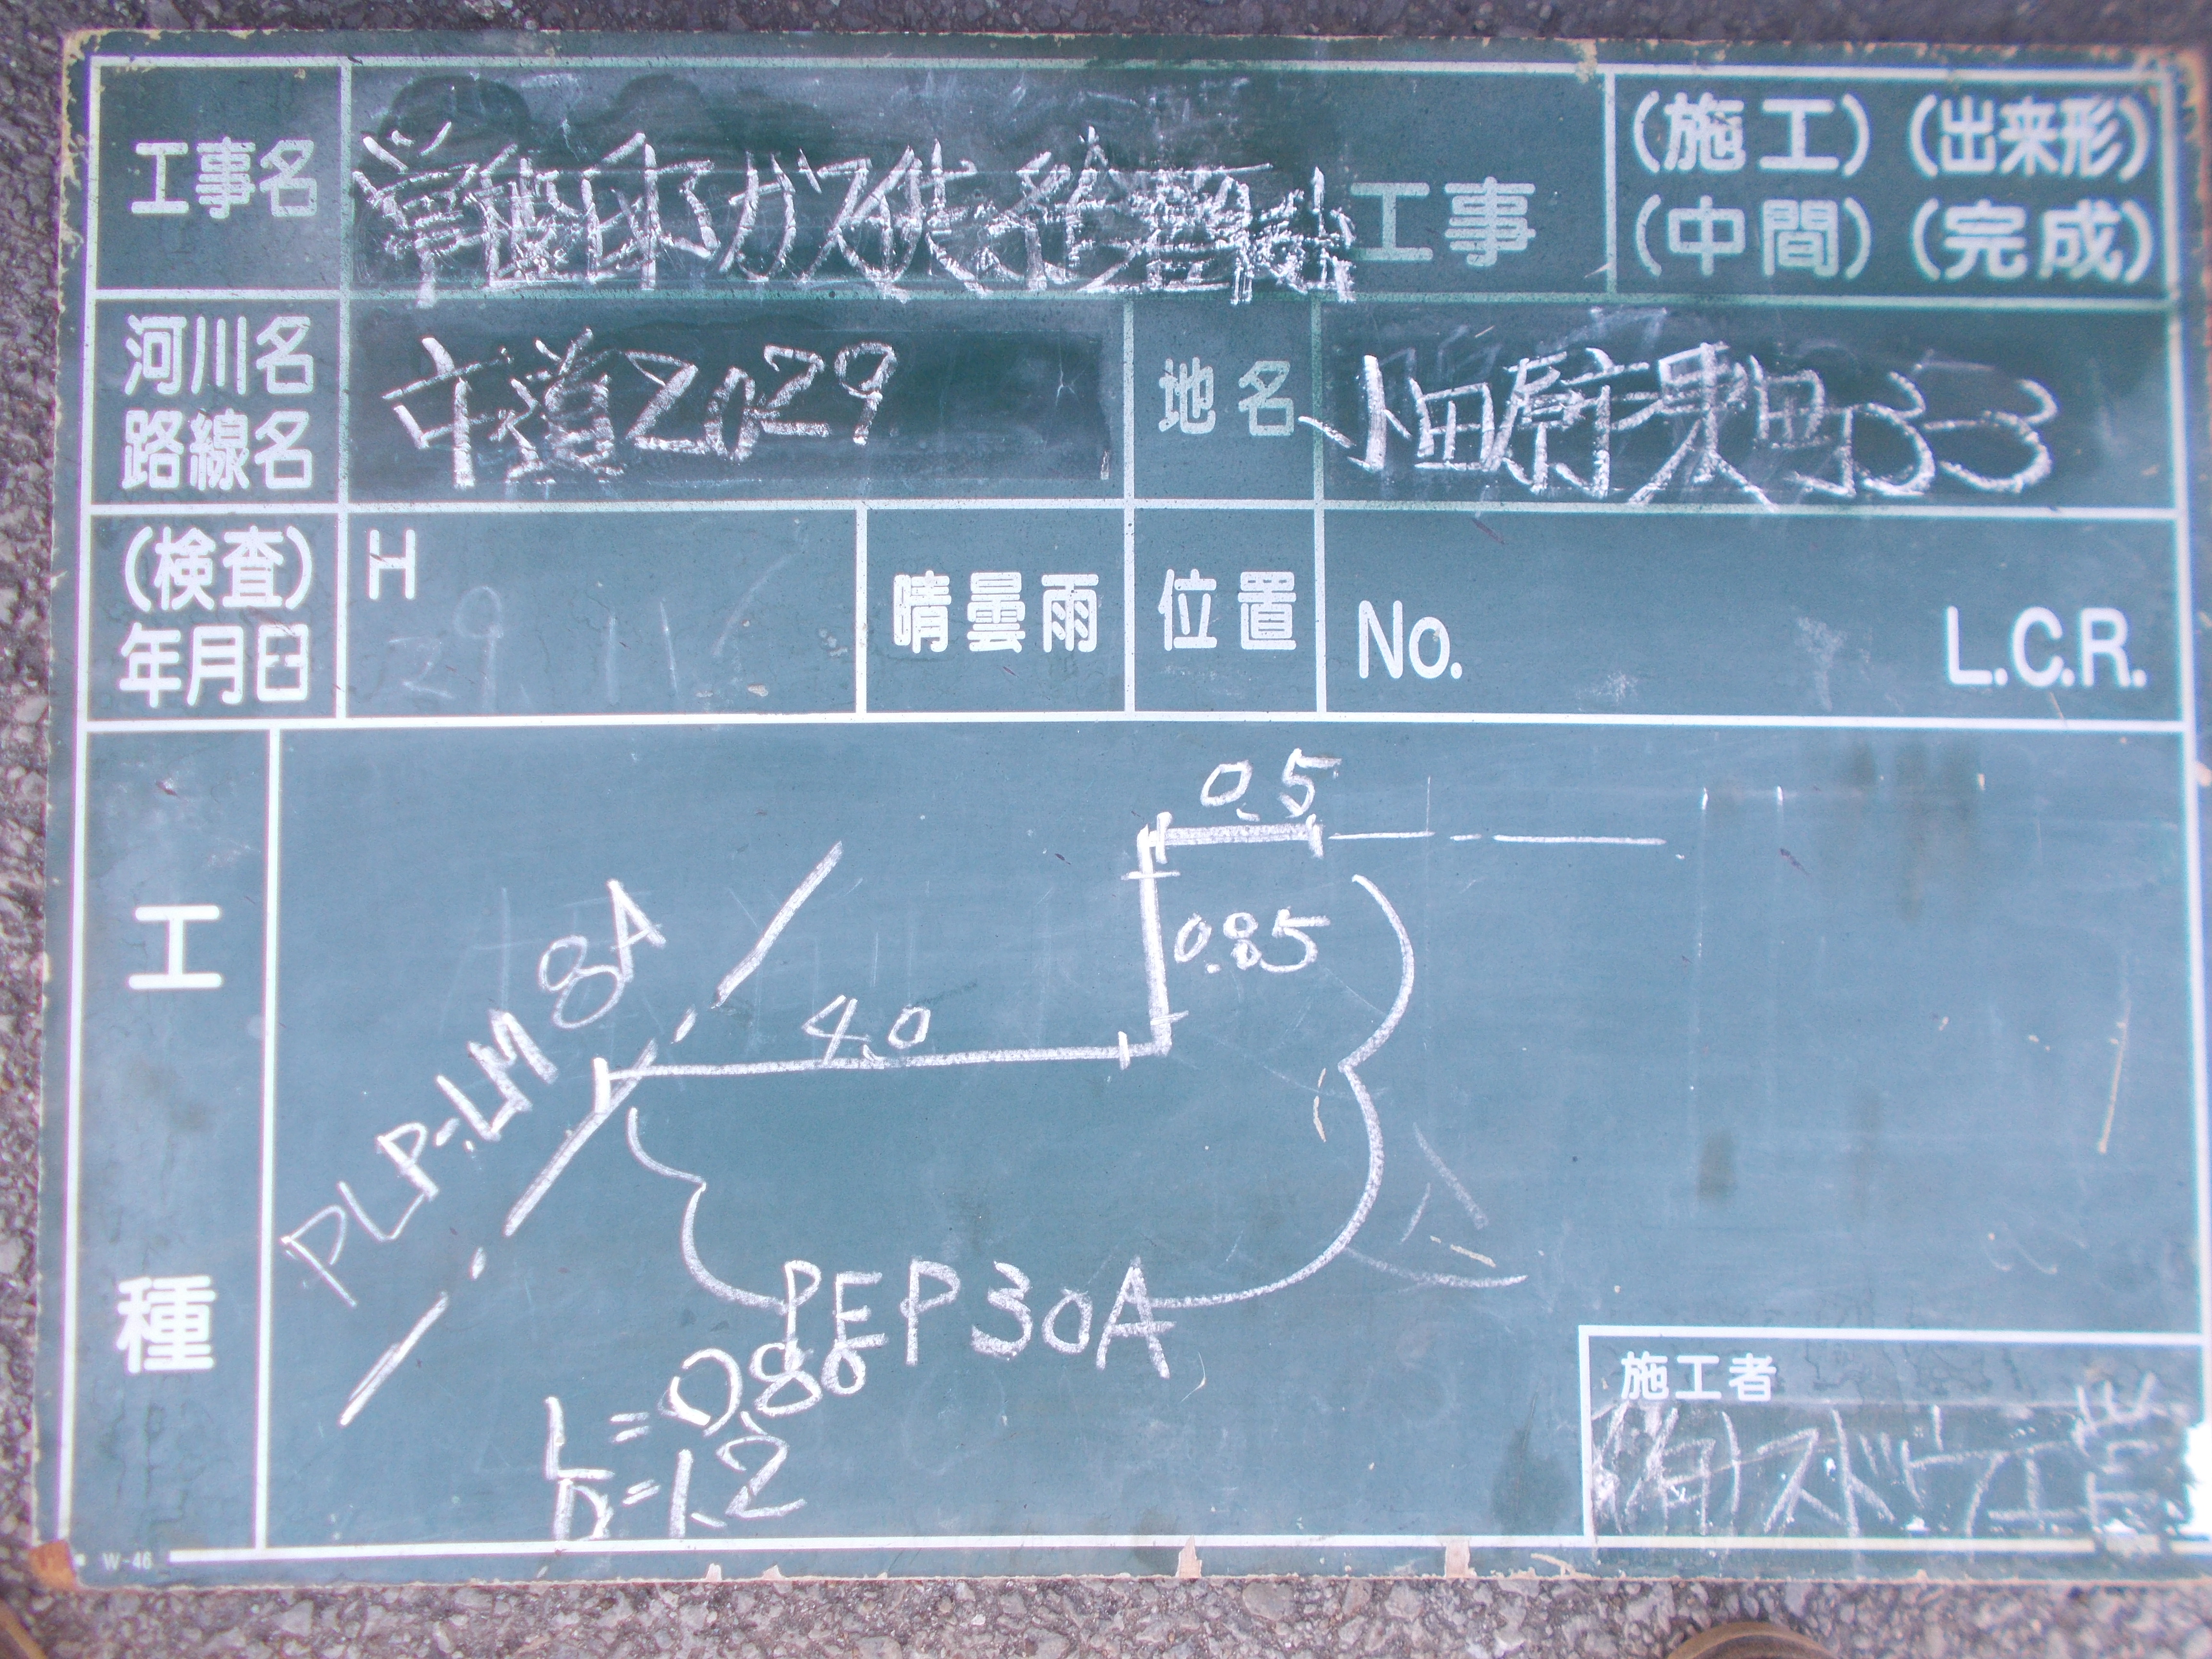 工事名
邸ガス供給管
工事
(施工) (出来形)
(中間) (完成)
河川名
路線名
市道2029
地名
小田原市東町
(検査)
年月日
H
29 11
晴曇雨
位置
No.
L.C.R.
工種
0.5
0.85
4.0
PLP-LM 8A
PEP30A
L=0.80
D=1.2
施工者
(有)スドウ工営
W-46